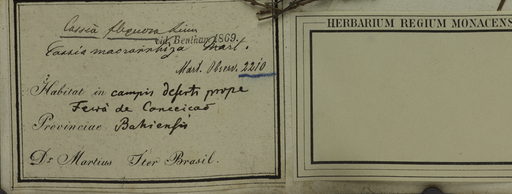 Cassia flexuosa Linn
vid. Bentham 1869.
Cassia macrorrhiza Mart.
Mart. Observ. 2210
Habitat in campis deserti prope
Feira de Conceicaõ
Provinciae Bahiensis
Dr Martius Iter Brasil.
HERBARIUM REGIUM MONACENS